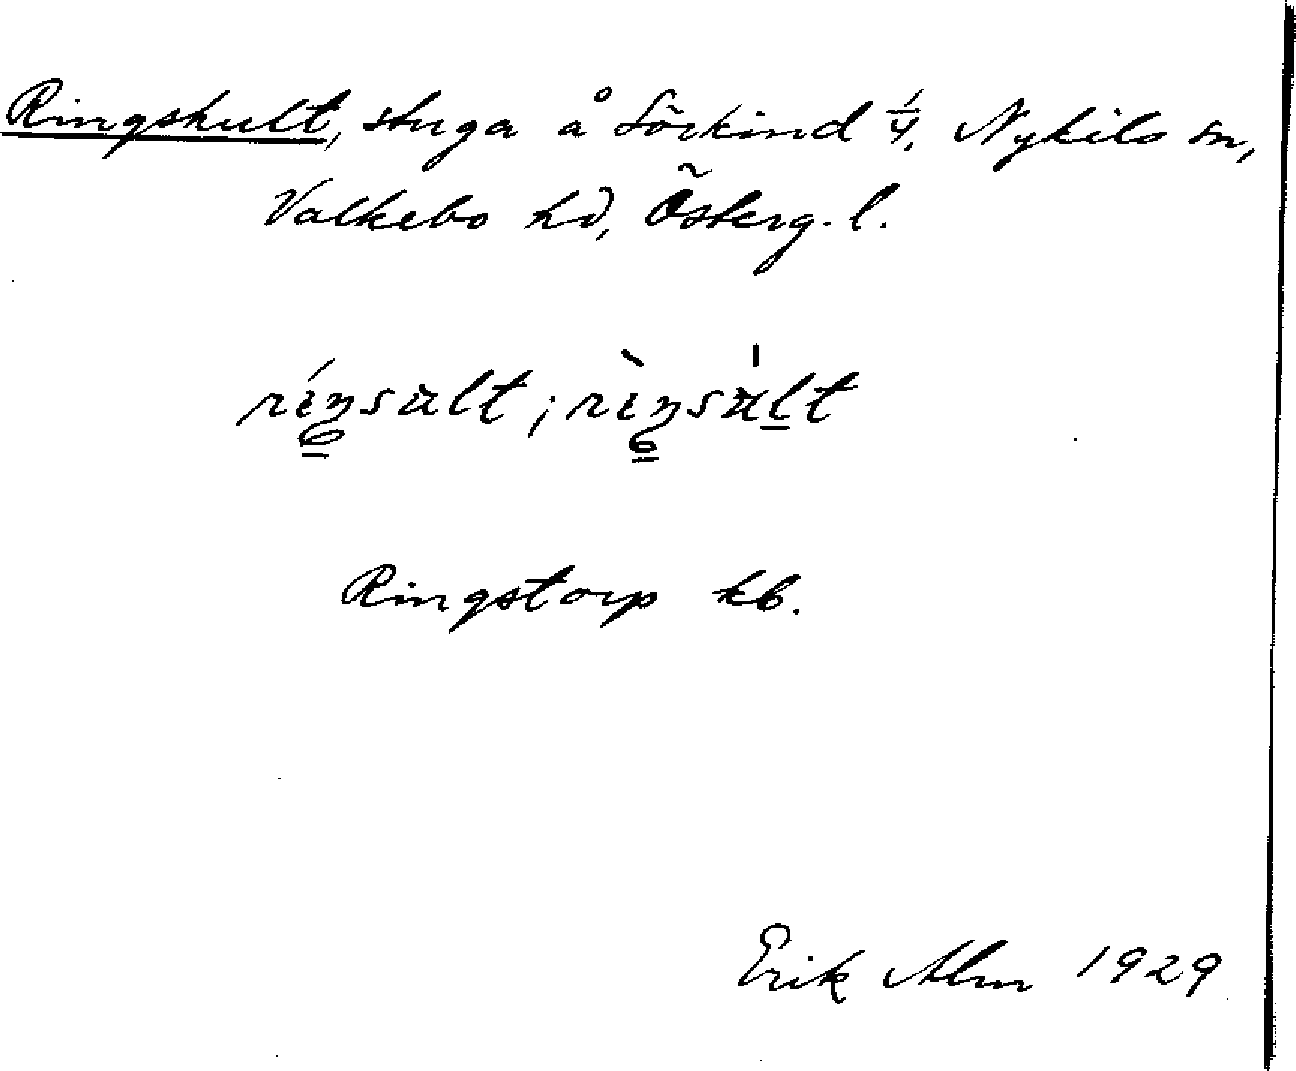 Ringskult, stuga å Sörkind 1/4, Nykils sn,
Valkebo hd, Österg. l.
Ringstorp kb.
Erik Alm 1929